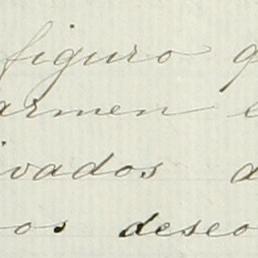 figuro q
armen e
ivados d
os deseo